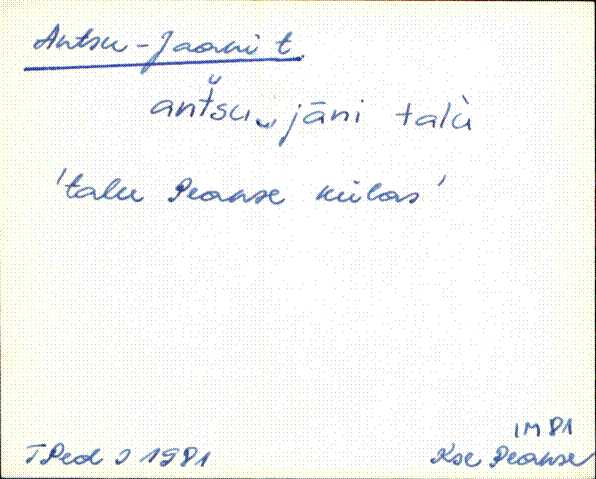 Antsu-Jaani t.
ant̆su‿jāni talù
'talu Peanse külas'
IM 81
TPed I 1981 Kse Peanse